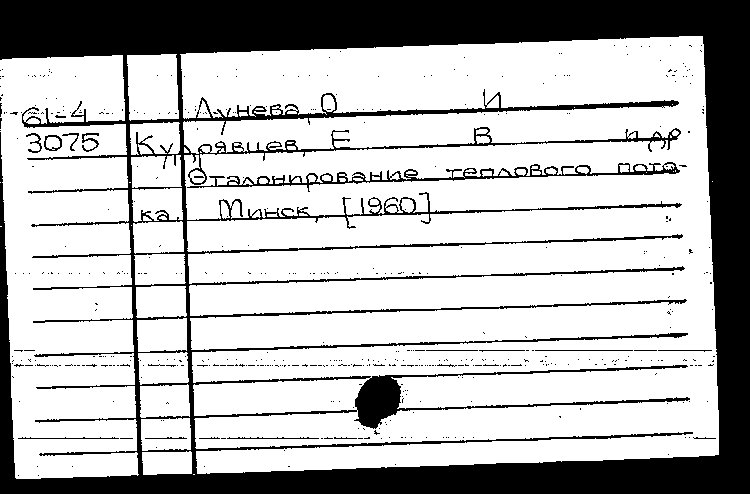 61-4 Лунева, О И
3075 Кудрявцев, Е В и др.
Эталонирование теплового пото-
ка. Минск, [1960]